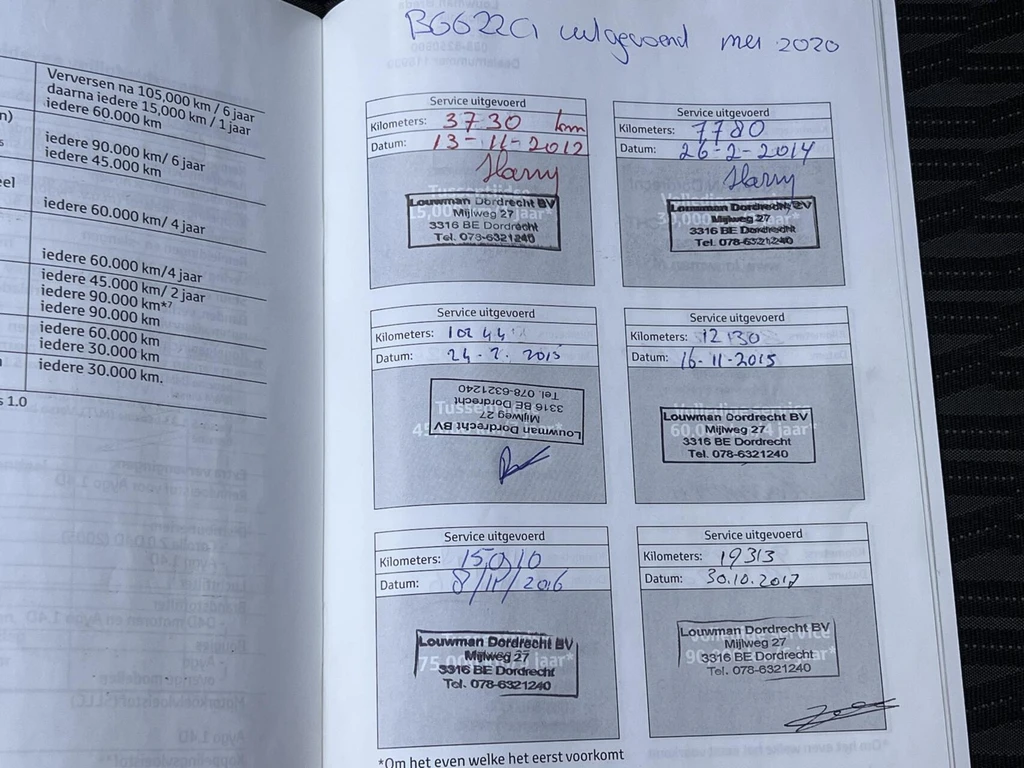 Verversen na 105,000 km / 6 jaar
daarna iedere 15,000 km / 1 jaar
iedere 60.000 km
iedere 90.000 km/ 6 jaar
iedere 45.000 km
iedere 60.000 km/ 4 jaar
iedere 60.000 km/4 jaar
iedere 45.000 km/ 2 jaar
iedere 90.000 km*⁷
iedere 90.000 km
iedere 60.000 km
iedere 30.000 km
iedere 30.000 km.
s 1.0
uitgevoerd mei 2020
Service uitgevoerd
Kilometers: 3730 km
Datum: 13-11-2012
Harry
Louwman Dordrecht BV
Mijlweg 27
3316 BE Dordrecht
Tel. 078-6321240
Service uitgevoerd
Kilometers: 7780
Datum: 26-2-2014
Harry
Louwman Dordrecht BV
Mijlweg 27
3316 BE Dordrecht
Tel. 078-6321240
Service uitgevoerd
Kilometers:
Datum: 24-2-2015
Louwman Dordrecht BV
Mijlweg 27
3316 BE Dordrecht
Tel. 078-6321240
Service uitgevoerd
Kilometers: 12130
Datum: 16-11-2015
Louwman Dordrecht BV
Mijlweg 27
3316 BE Dordrecht
Tel. 078-6321240
Service uitgevoerd
Kilometers: 15010
Datum: 8/11/2016
Louwman Dordrecht BV
Mijlweg 27
3316 BE Dordrecht
Tel. 078-6321240
Service uitgevoerd
Kilometers: 19313
Datum: 30.10.2017
Louwman Dordrecht BV
Mijlweg 27
3316 BE Dordrecht
Tel. 078-6321240
*Om het even welke het eerst voorkomt